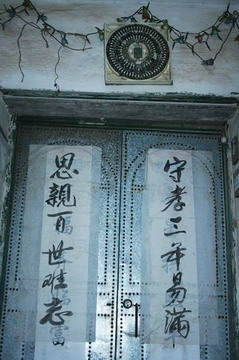 守孝三年易滿
思親百世難忘